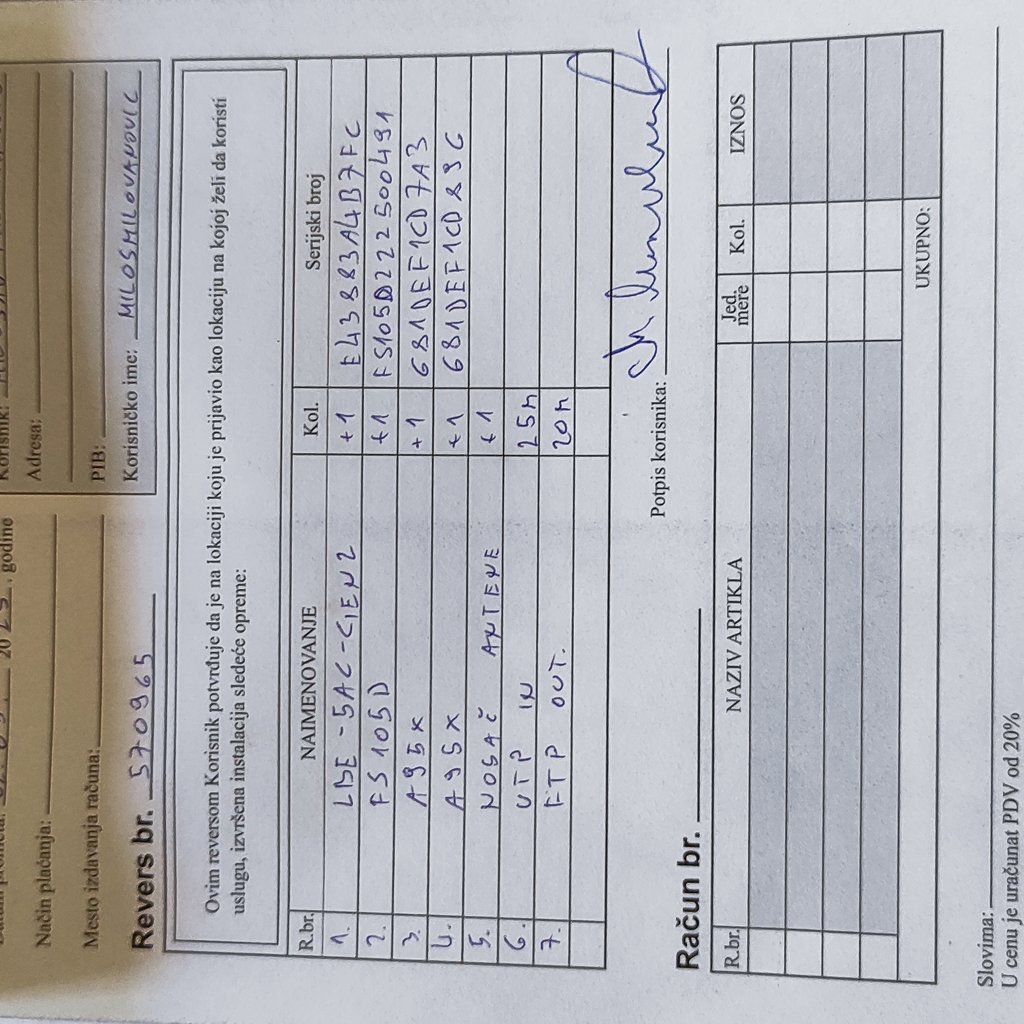 20 23 . godine
Način plaćanja:
Adresa:
Mesto izdavanja računa:
PIB:
Revers br. 570965
Korisničko ime: MILOSMILOVANOVIC
Ovim reversom Korisnik potvrđuje da je na lokaciji koju je prijavio kao lokaciju na kojoj želi da koristi
uslugu, izvršena instalacija sledeće opreme:
R.br. NAIMENOVANJE Kol. Serijski broj
1. LBE-5AC-GEN2 +1 E43883A4B7FC
2. FS105D +1 FS105D222500491
3. A95X +1 681DEF1CD7A3
4. A95X +1 681DEF1CD89C
5. NOSAČ ANTENE +1
6. UTP IN 25m
7. FTP OUT. 20m
Potpis korisnika:
Račun br.
R.br. NAZIV ARTIKLA Jed. mere Kol. IZNOS
UKUPNO:
Slovima:
U cenu je uračunat PDV od 20%